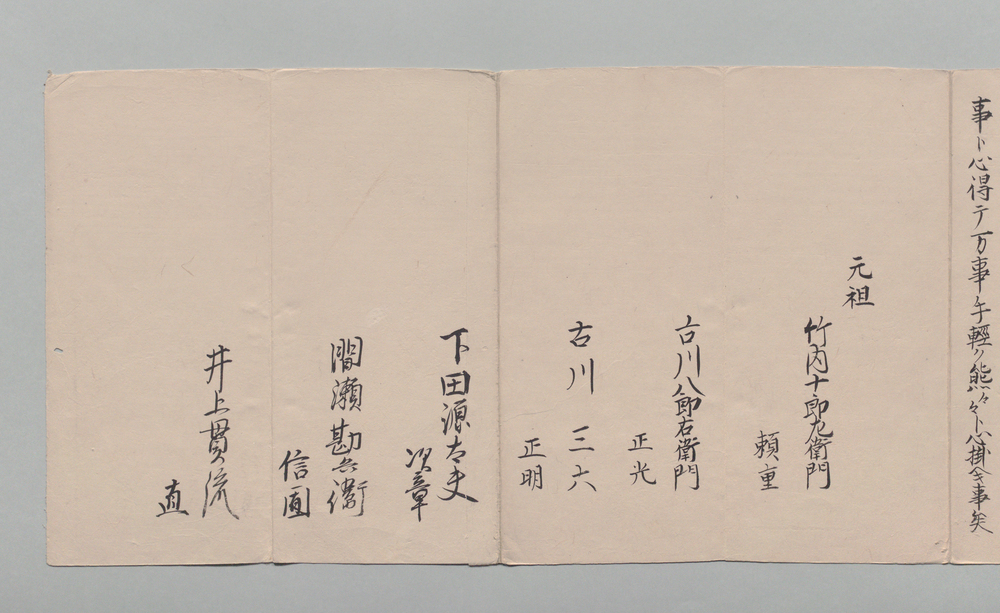 事ト心得テ万事手軽ク熊々ト心掛ケ事矣
元祖
竹内十郎左衛門
頼重
古川八郎右衛門
正光
古川三六
正明
下田源太夫
次章
間瀬勘兵衛
信圓
井上貫流
直